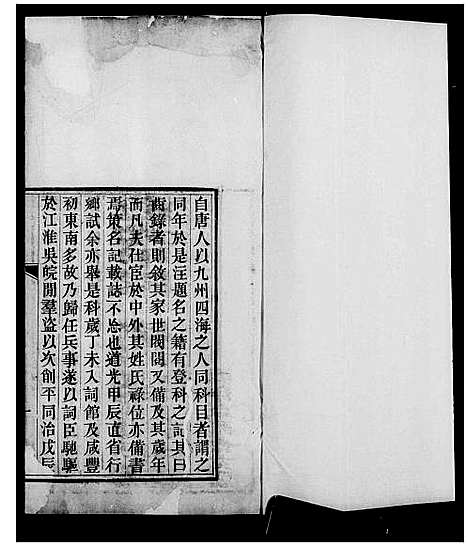 自唐人以九州四海之人同科目者謂之
同年於是注題名之籍有登科之記其曰
齒錄者則敘其家世閥閱又備及其歲年
而凡夫仕宦於中外其姓氏祿位亦備書
焉策名記載誌不忘也道光甲辰直省行
鄉試余亦舉是科歲丁未入詞館及咸豐
初東南多故乃歸任兵事遂以詞臣馳驅
於江淮吳皖閒羣盜以次削平同治戊辰